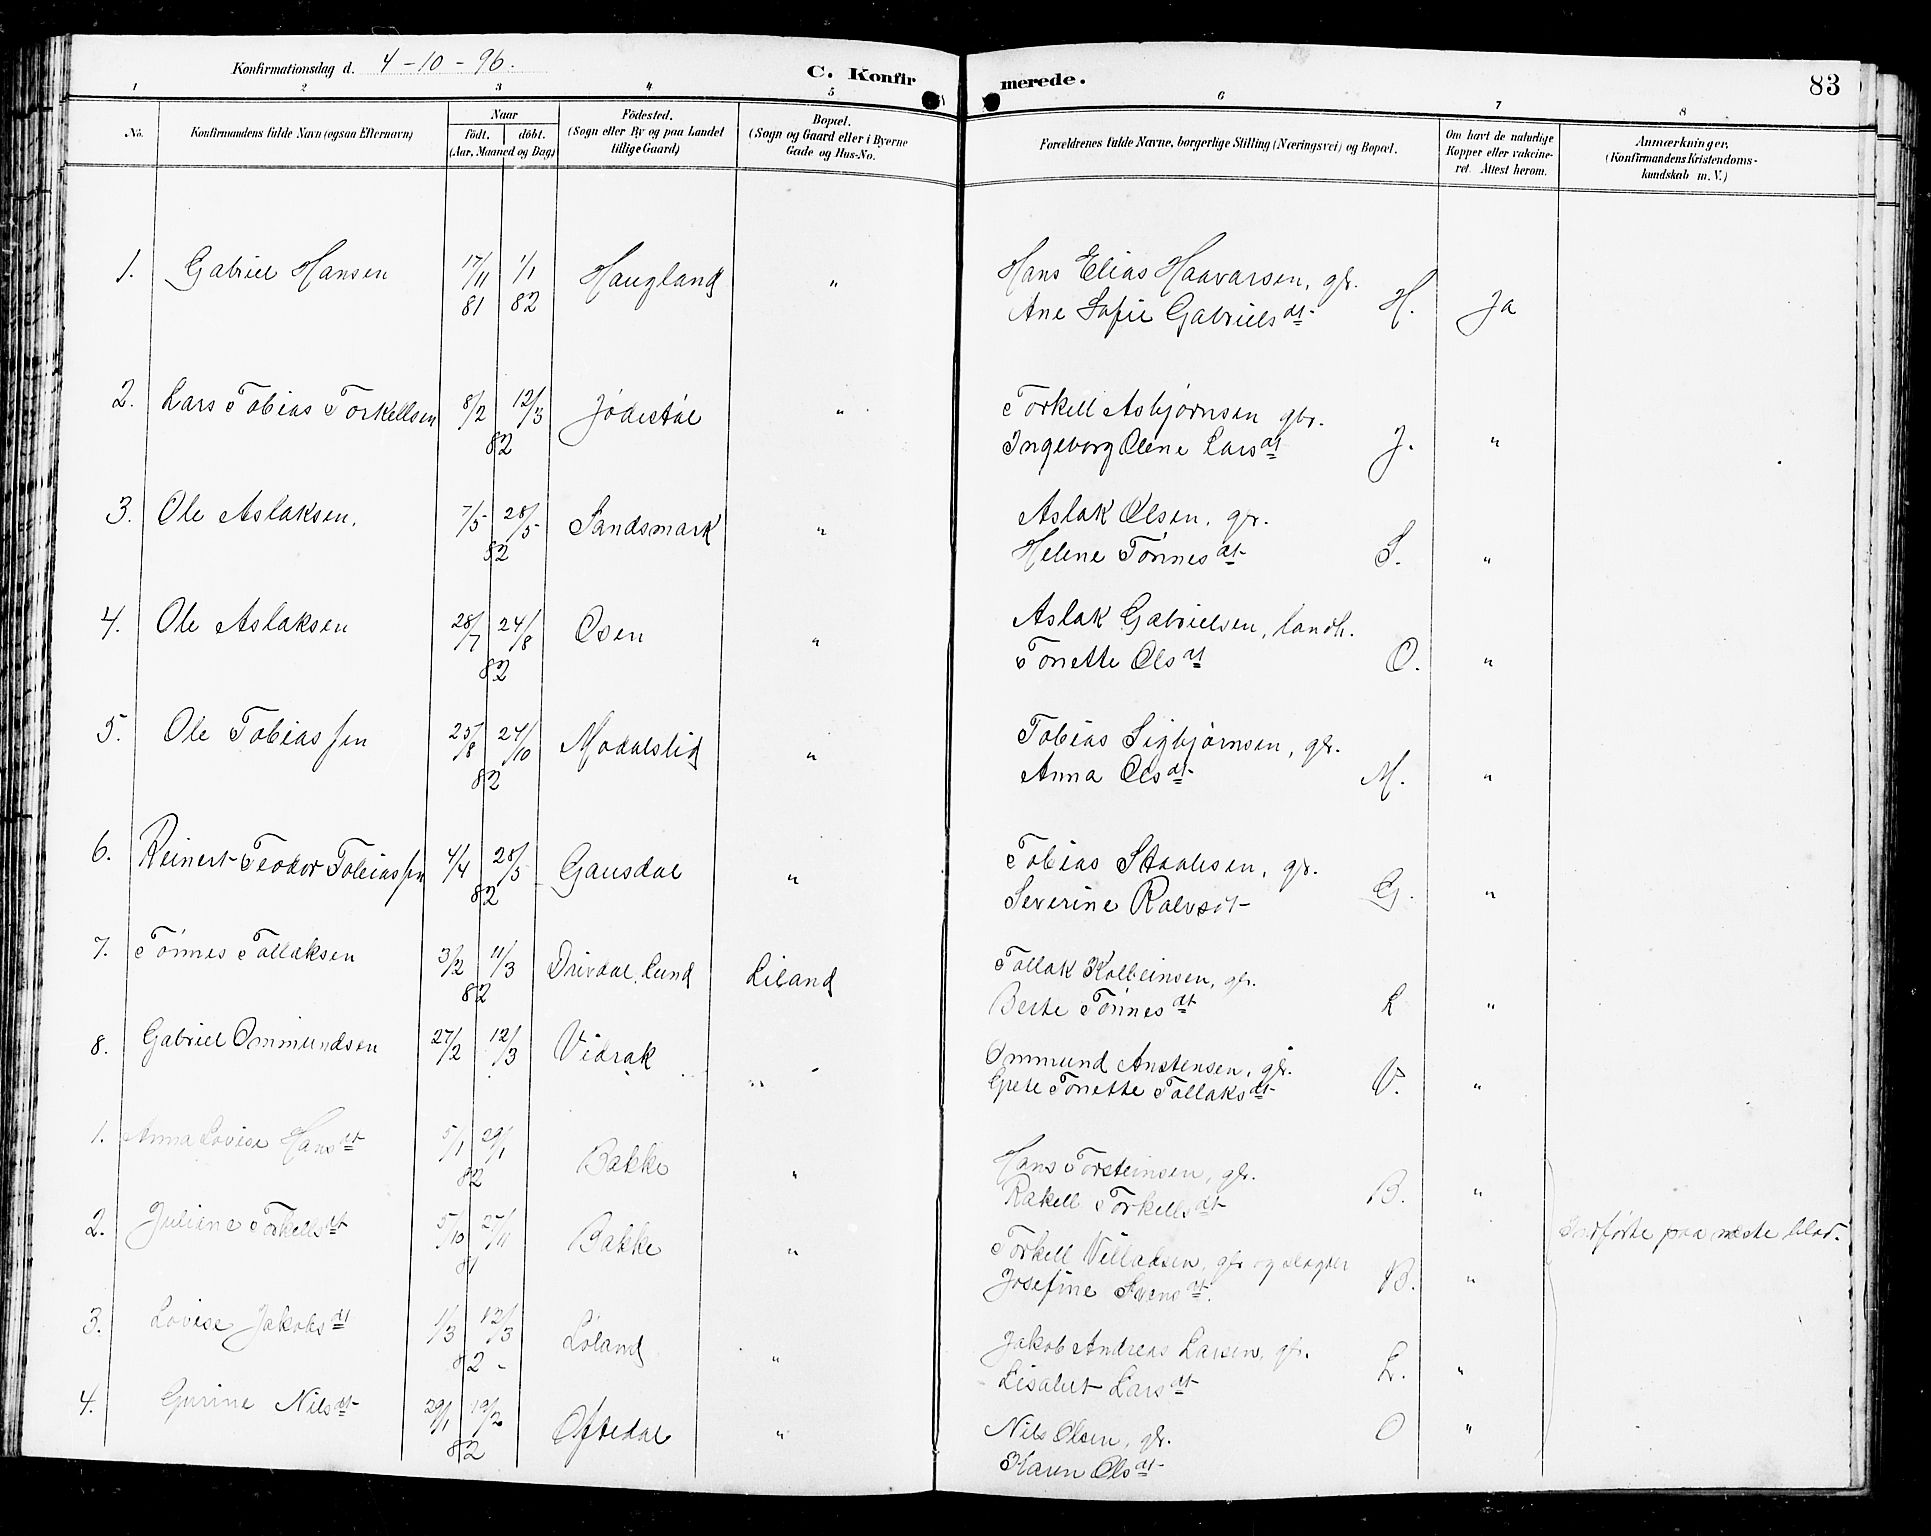 Konfirmationsdag d. 4-10-96.
C. Konfirmerede.
83
1 2 3 4 5 6 7 8
No.
Konfirmandens fulde Navn (ogsaa Efternavn)
Naar
født. døbt.
(Aar, Maaned og Dag)
Fødested.
(Sogn eller By og paa Landet
tillige Gaard)
Bopæl.
(Sogn og Gaard eller i Byerne
Gade og Hus-No.
Forældrenes fulde Navne, borgerlige Stilling (Næringsvei) og Bopæl.
Om havt de naturlige
Kopper eller vakcine-
ret. Attest herom.
Anmerkninger,
(Konfirmandens Kristendoms-
kundskab m. V.)
1. Gabriel Hansen 17/11 81 1/1 82 Haugland " Hans Elias Haavarsen, gbr.
Ane Sofie Gabrielsdt H. Ja
2. Lars Tobias Torkellsen 8/2 12/3 82 Jødestøl " Torkell Asbjørnsen gbr.
Ingeborg Olene Larsdt J. "
3. Ole Aslaksen, 7/5 28/5 82 Sandsmark " Aslak Olsen, gbr.
Helene Tønnesdt S. "
4. Ole Aslaksen 28/7 24/8 82 Osen " Aslak Gabrielsen, landh.
Tonette Olsdt O. "
5. Ole Tobiassen 25/8 24/10 82 Modalslid " Tobias Sigbjørnsen, gbr.
Anna Olsdt M. "
6. Reinert Teodor Tobiassen 4/4 28/5 82 Gausdal " Tobias Staalesen, gbr.
Severine Ralvsdt G. "
7. Tønnes Tollaksen 3/2 11/3 82 Drivdal, Lund Liland Tollak Kolbeinsen, gbr.
Berte Tønnesdt L "
8. Gabriel Ommundsen 27/2 12/3 Vidrak " Ommund Anstensen, gbr.
Grete Tonette Tollaksdt V. "
1. Anna Lovise Hansdt 5/1 29/1 82 Bakke " Hans Torsteinsen, gbr.
Rakell Torkellsdt B. "
2. Juliane Torkellsdt 5/10 27/11 81 Bakke " Torkell Villadsen, gbr og slagter
Josefine Svensdt. B. "
Indførte paa næste blad.
3. Lovise Jakobsdt 1/3 12/3 82 Løland " Jakob Andreas Larsen, gbr.
Lisabet Larsdt L. "
4. Gurine Nilsdt 29/1 19/2 82 Oftedal " Nils Olsen, gbr. O "
Karen Olsdt